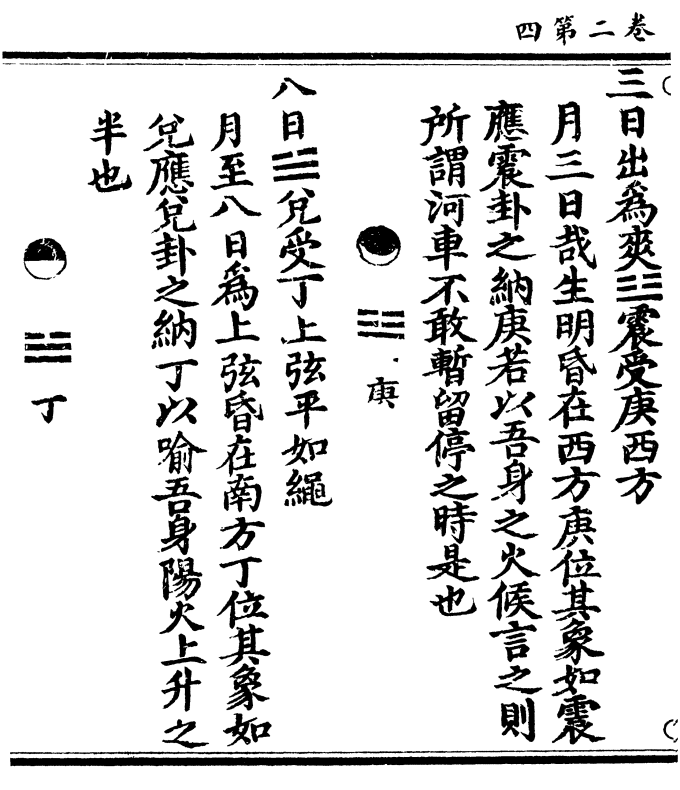 卷二第四
三日出爲爽☳震受庚西方
月三日哉生明昏在西方庚位其象如震
應震卦之納庚若以吾身之火候言之則
所謂河車不敢暫留停之時是也
庚
八日☱兌受丁上弦平如繩
月至八日爲上弦昏在南方丁位其象如
兌應兌卦之納丁以喻吾身陽火上升之
半也
丁